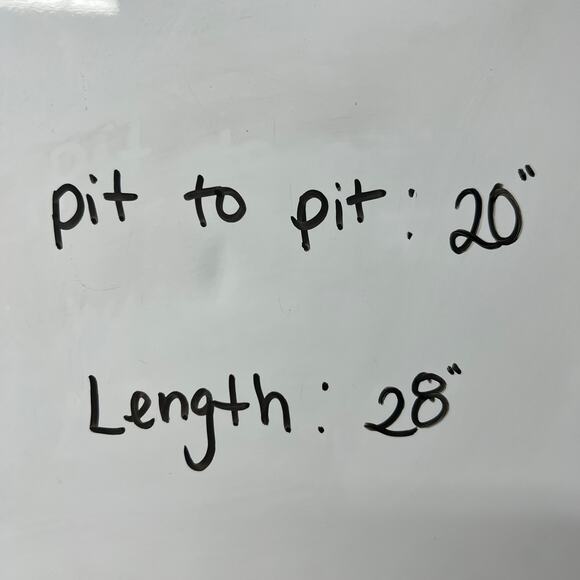 pit to pit: 20"
Length: 28"